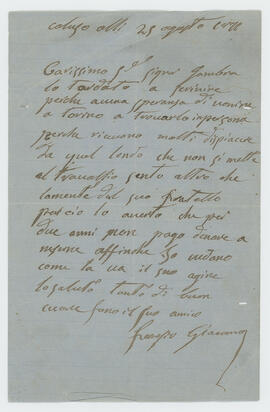 caluso alli 25 agosto
Carissimo Sig signor Gambra
lo tardato a scrivire
perche aveva speranza di venire
a torino a trovarlo in persona
perche ricevono molti dispiacere
da quel londo che non si mette
al travaglio sento altro che
lamente dal suo fratello
percio lo questo che per
due anni non pago denaro a
nesune affinche vedano
come la va il suo agire
lo saluto tanto di buon
cuore sono il suo amico
Giacomo